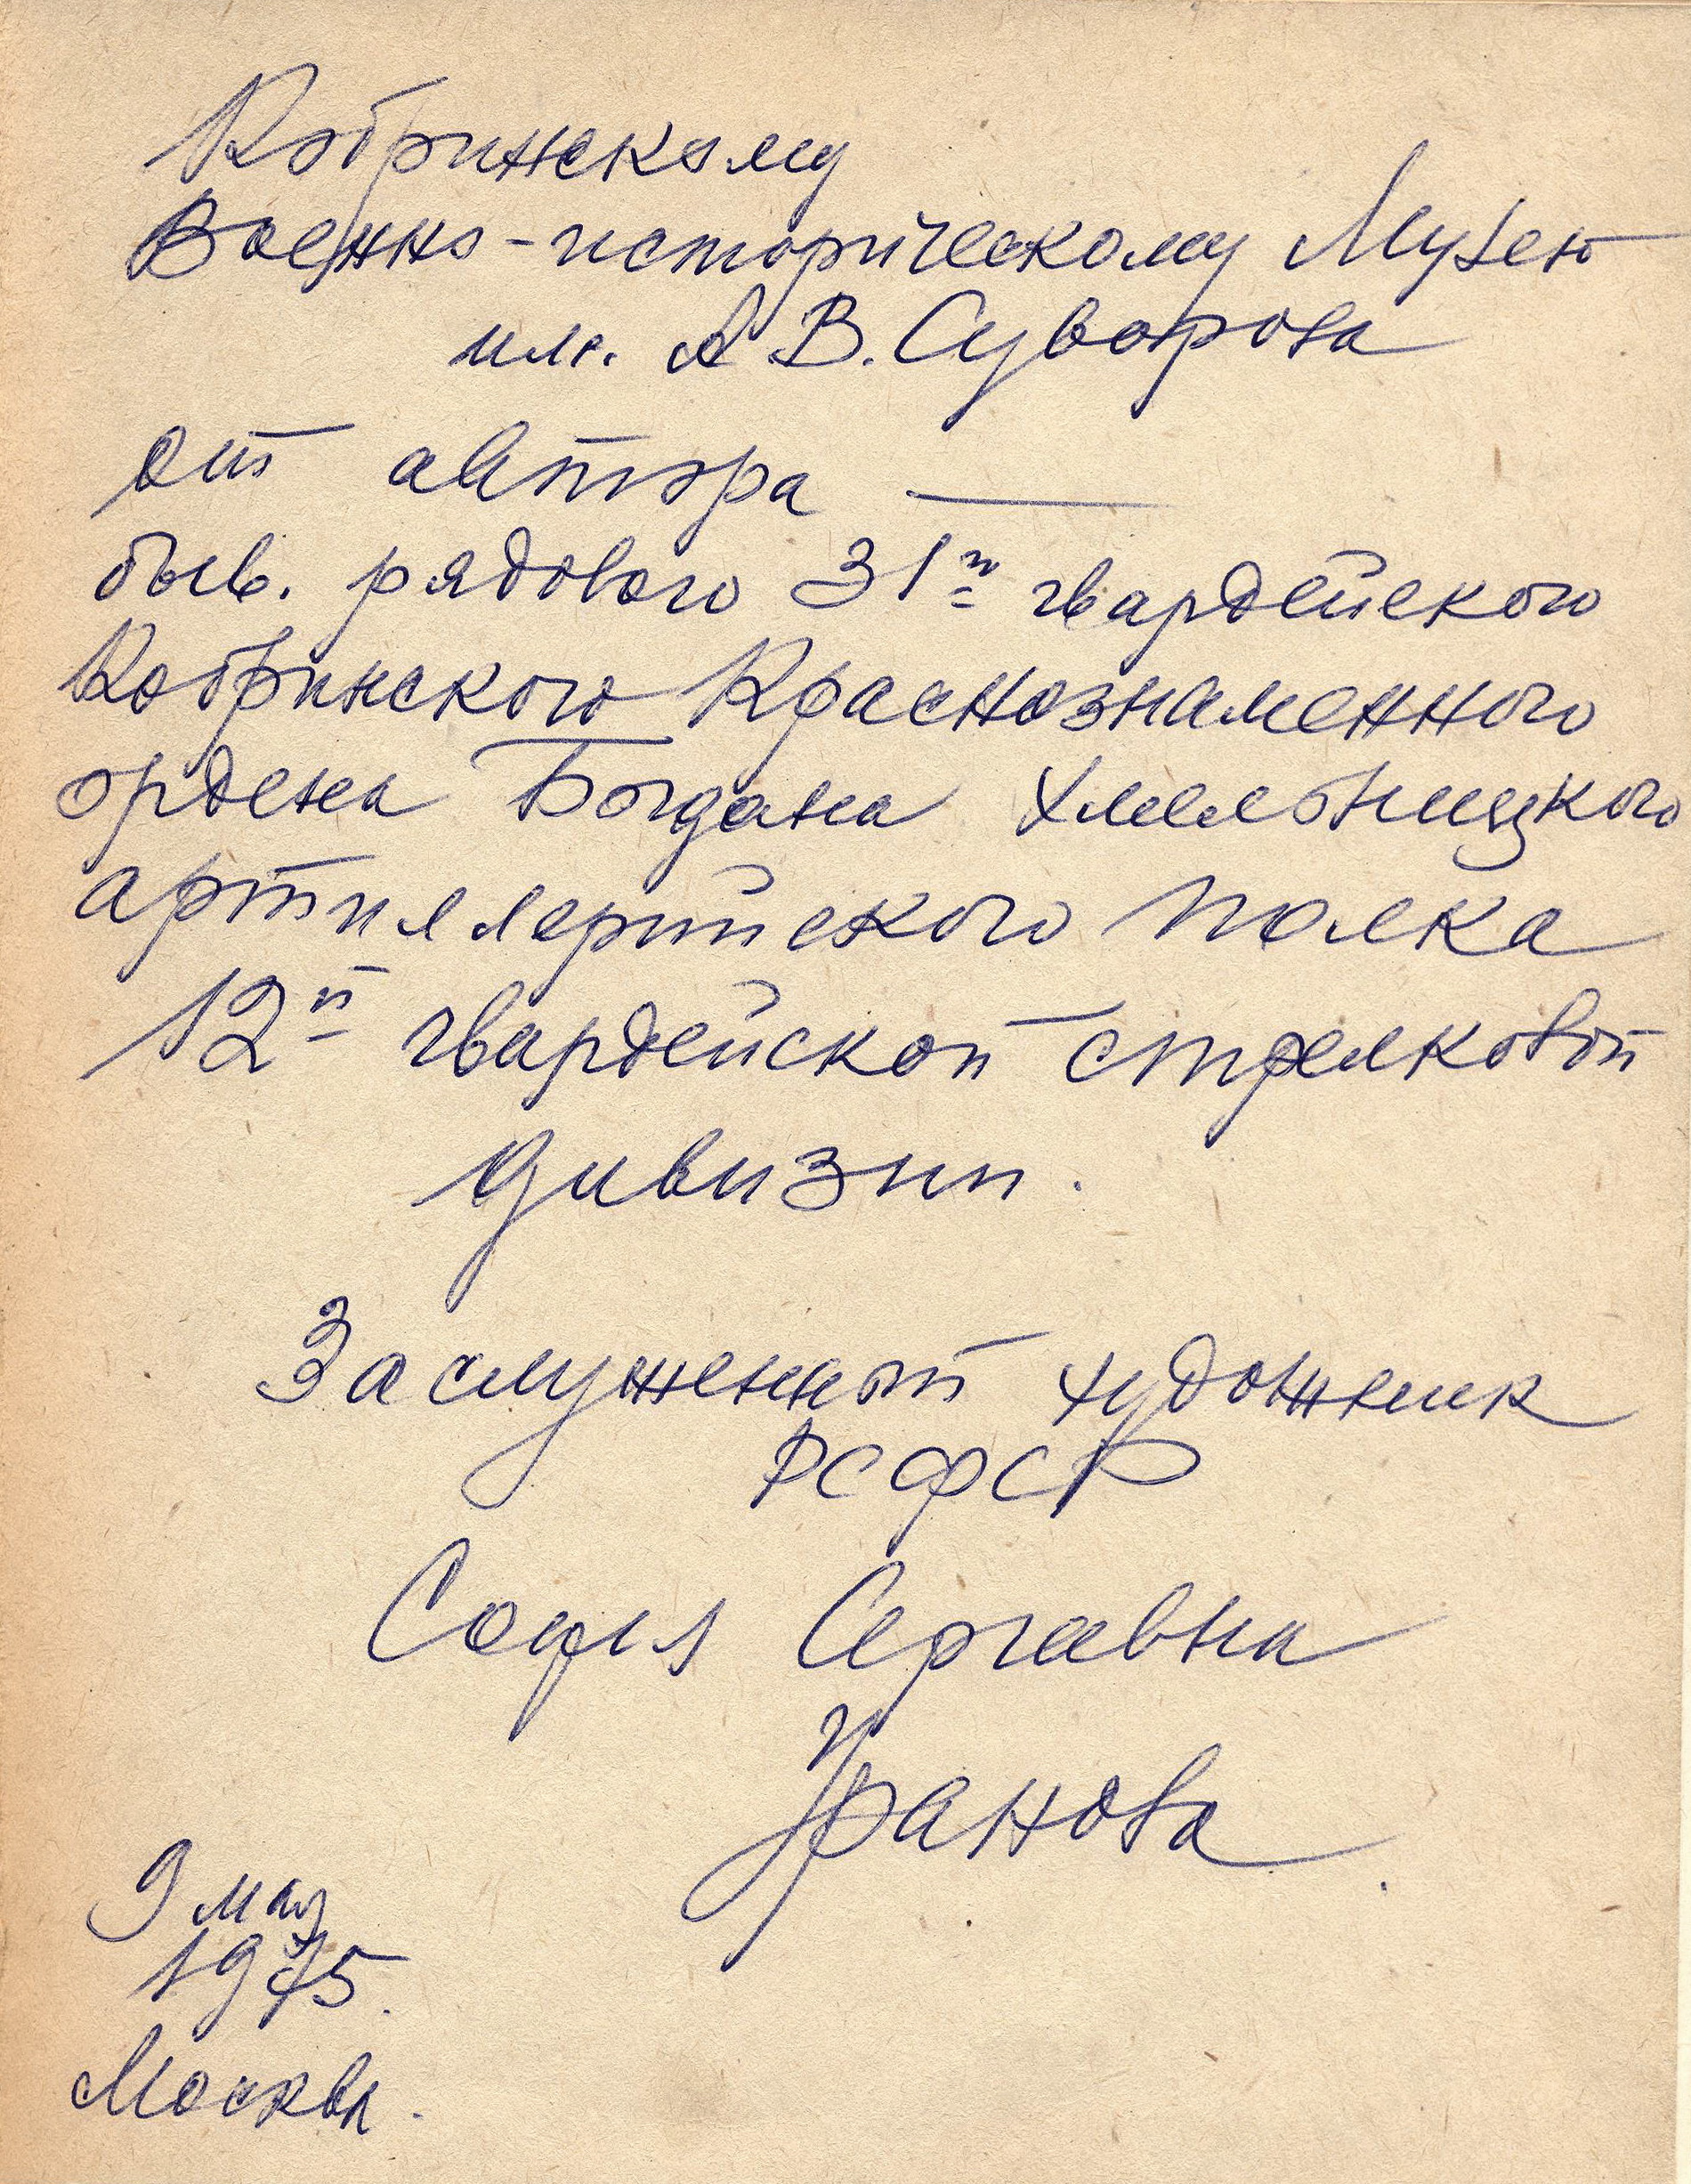 Кобринскому
Военно-историческому Музею
им. А В. Суворова
от автора —
быв. рядового 31го гвардейского
Кобринского Краснознаменного
ордена Богдана Хмельницкого
артиллерийского полка
12й гвардейской стрелковой
дивизии.
Заслуженный художник
РСФСР
Софья Сергеевна
Уранова
9 мая
1975.
Москва.